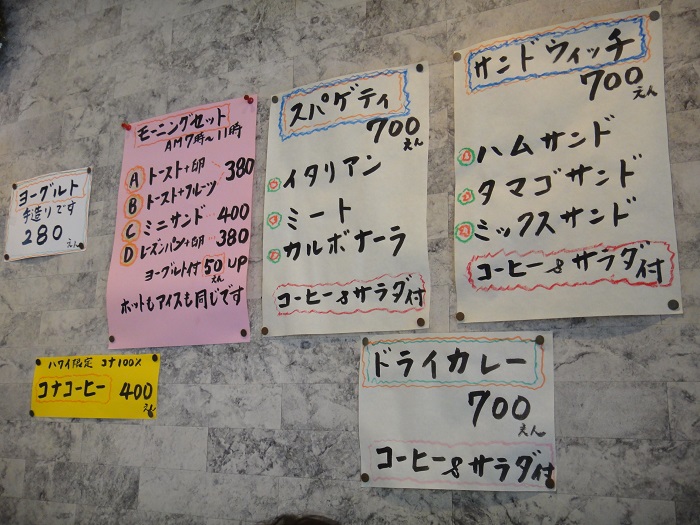 ヨーグルト
手造りです
280えん
モーニングセット
AM7時〜11時
Ⓐトースト+卵
Ⓑトースト+フルーツ
380
Ⓒミニサンド 400
Ⓓレーズンパン+卵 380
ヨーグルト付 50えん UP
ホットもアイスも同じです
ハワイ限定 コナ100%
コナコーヒー 400えん
スパゲティ
700えん
イタリアン
ミート
カルボナーラ
コーヒー&サラダ付
サンドウィッチ
700えん
ハムサンド
タマゴサンド
ミックスサンド
コーヒー&サラダ付
ドライカレー
700えん
コーヒー&サラダ付